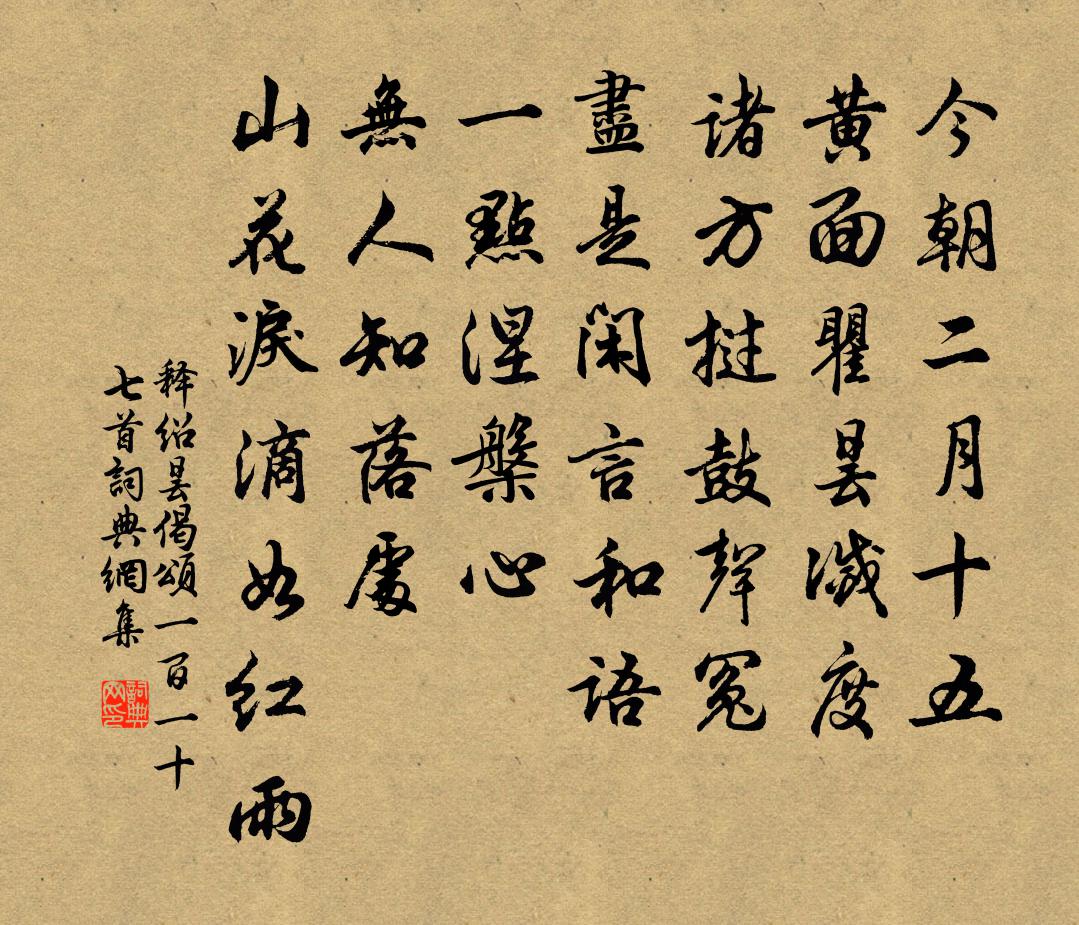 今朝二月十五
黄面瞿昙滅度
诸方挝鼓聲冤
盡是闲言和語
一點涅槃心
無人知落處
山花淚滴如红雨
释绍昙偈頌一百一十
七首詞典網集
詞典网印